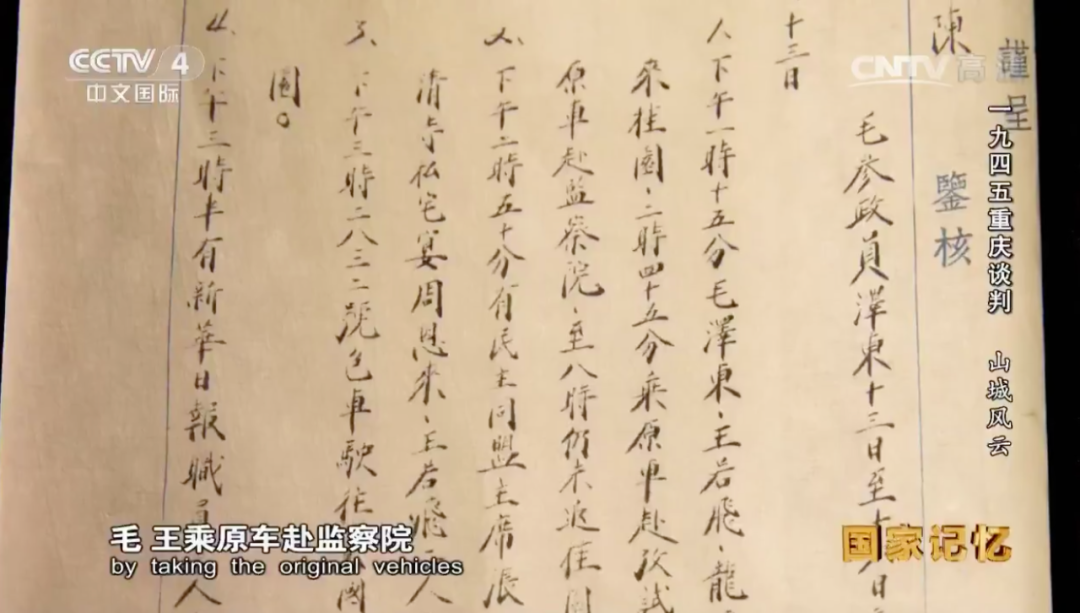 CCTV 4
中文国际
CNTV 高清
一九四五重庆谈判 山城风云
謹呈
鑒核
陳
毛參政員澤東十三日至十日
十三日
1、下午一時十五分毛澤東、王若飛、龍
來桂園、二時四十五分乘原車赴攷試
原車赴監察院、至八時仍未返桂園
2、下午二時五十分有民主同盟主席張
清寺私宅宴周恩來、王若飛二人
3、下午三時二八三二號包車駛往
園。
4、下午三時半有新華日報職員人
毛 王乘原车赴监察院
by taking the original vehicles
国家记忆